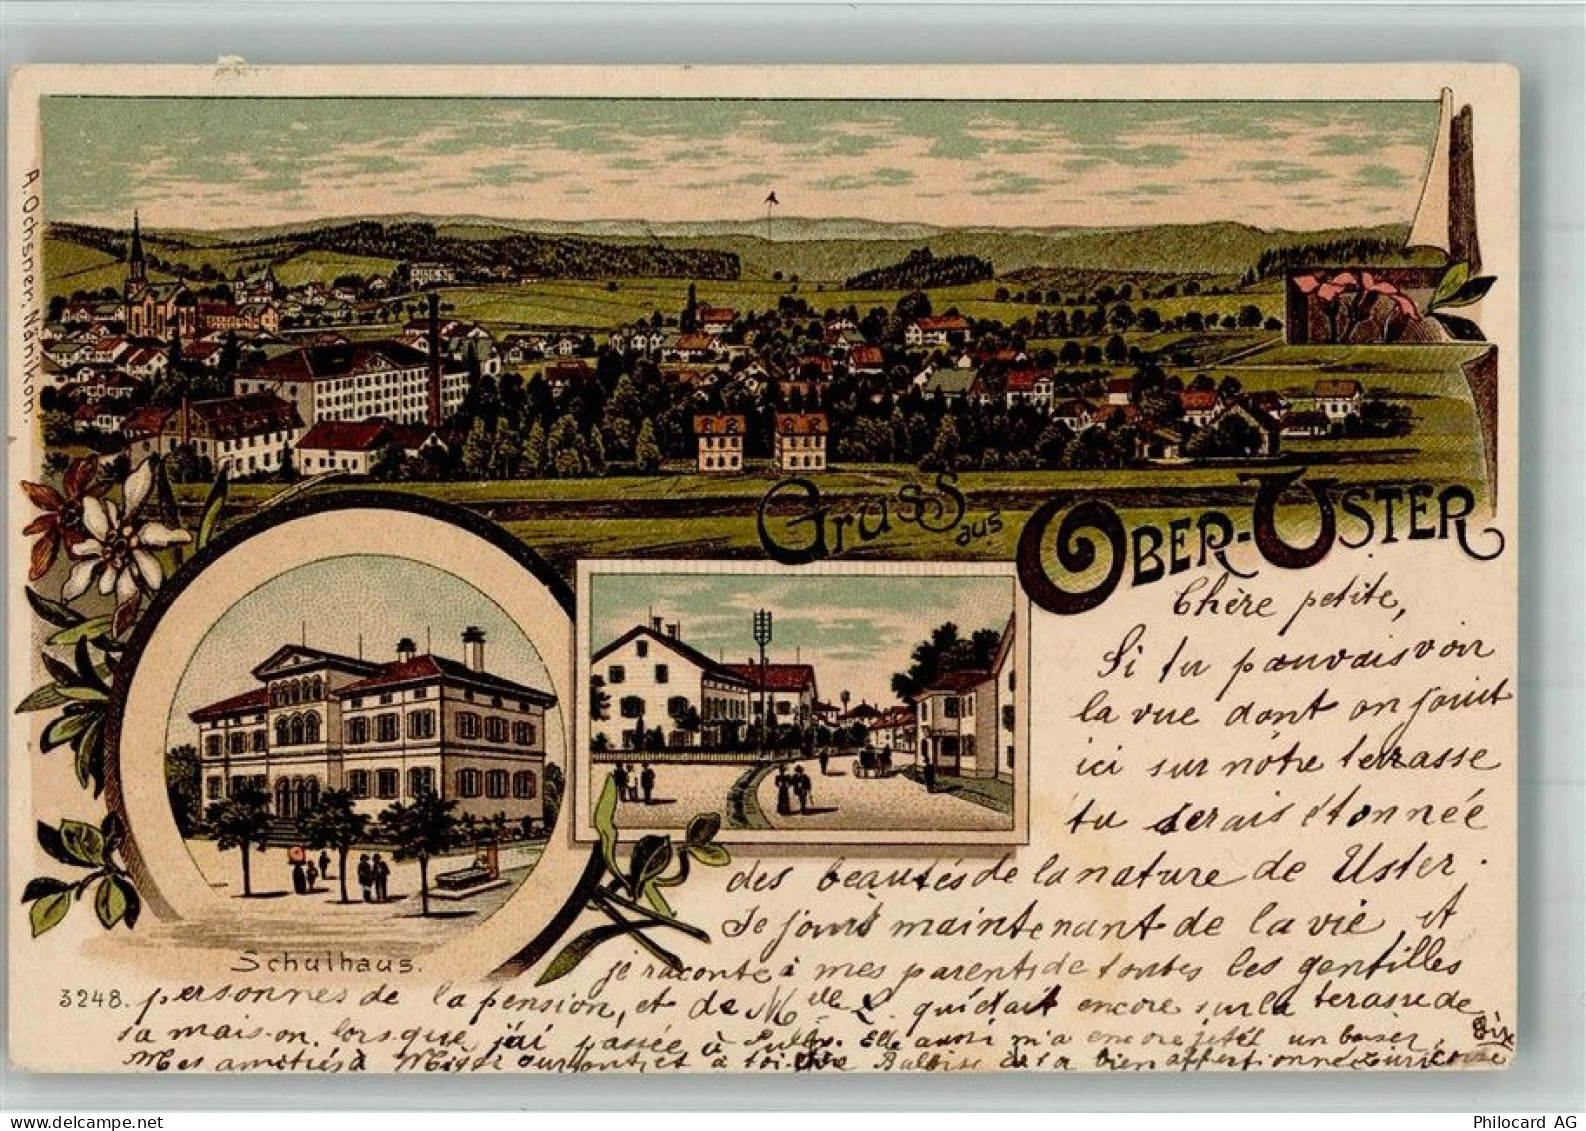 A. Ochsner. Nänikon.
Gruss aus OBER-USTER
Chère petite,
Si tu pouvais voir
la vue dont on jouit
ici sur nôtre terrasse
tu serais étonnée
des beautés de la nature de Uster.
Je jouis maintenant de la vie et
je raconte à mes parents de toutes les gentilles
Schulhaus.
3248. personnes de la pension, et de Mlle L. qui était encore sur la terasse de
sa maison lorsque j'ai passée à Pully. Elle aussi m'a encore jetés un baiser,
Mes amitiés à et à toi. Baloise de ta bien affectionnée Zuricoise
delcampe.net
Philocard AG